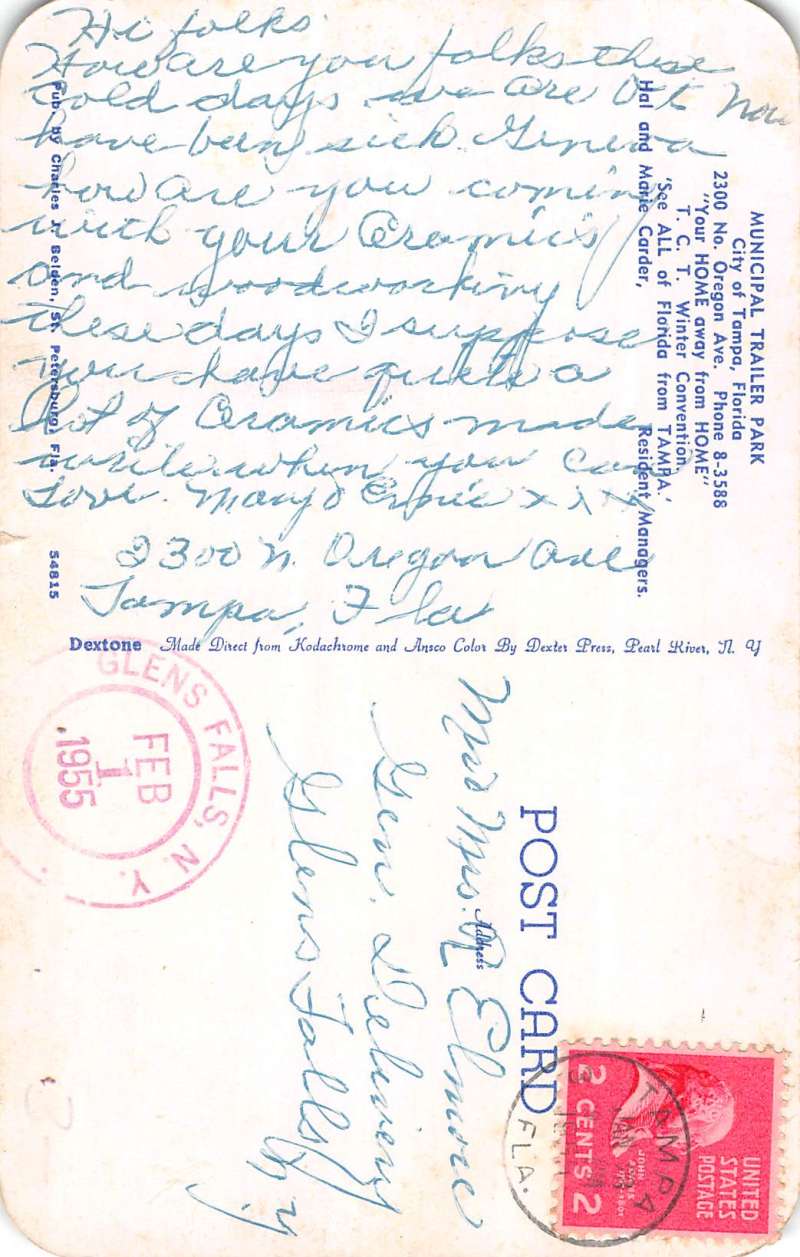 Hi folks
How are you folks these
cold days we are OK now
have been sick Geneva
how are you coming
with your Cramics
and woodworking
these days I suppose
you have quite a
lot of Cramics made
write when you can
Love. Mary & Ernie x x x
2300 N. Oregon Ave
Tampa, Fla
MUNICIPAL TRAILER PARK
City of Tampa, Florida
2300 No. Oregon Ave. Phone 8-3588
"Your HOME away from HOME"
T. C. T. Winter Convention
'See ALL of Florida from TAMPA.'
Hal and Marie Carder, Resident Managers.
Pub. by Charles J. Belden, St. Petersburg, Fla. 54815
Dextone Made Direct from Kodachrome and Ansco Color By Dexter Press, Pearl River, N. Y
GLENS FALLS, N. Y.
FEB
1
1955
POST CARD
Address
Mr & Mrs. R Elmore
Gen. Delivery
Glens Falls
N. Y.
TAMPA
JAN
FLA.
UNITED
STATES
POSTAGE
JOHN
ADAMS
2 CENTS 2